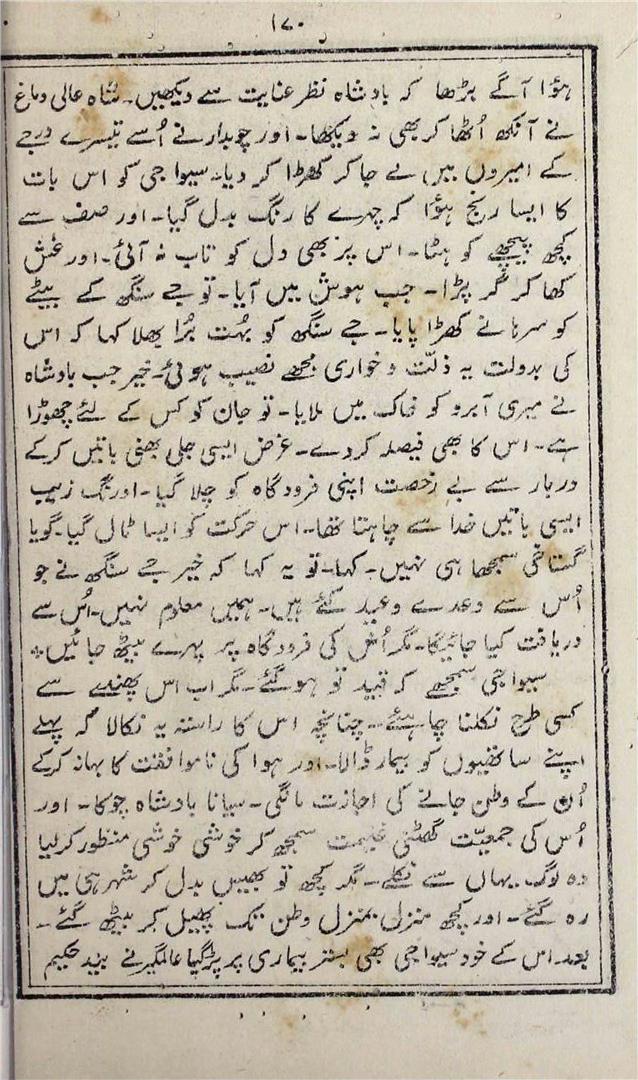 ۱۷۰
ہؤا آگے بڑھا کہ بادشاہ نظر عنایت سے دیکھیں۔ شاہ عالی دماغ
نے آنکھ اُٹھا کر بھی نہ دیکھا۔ اور چوبدار نے اُسے تیسرے درجے
کے امیروں میں لے جا کر کھڑا کر دیا۔ سیوا جی کو اس بات
کا ایسا رنج ہؤا کہ چہرے کا رنگ بدل گیا۔ اور صف سے
کچھ پیچھے کو ہٹا۔ اس پر بھی دل کو تاب نہ آئی۔ اور غش
کھا کر گر پڑا۔ جب ہوش میں آیا۔ تو جے سنگھ کے بیٹے
کو سرہانے کھڑا پایا۔ جے سنگھ کو بہُت بُرا بھلا کہا کہ اس
کی بدولت یہ ذلّت و خواری مجھے نصیب ہوئی۔ خیر جب بادشاہ
نے میری آبرو کو خاک میں ملایا۔ تو جان کو کس کے لئے چھوڑا
ہے۔ اس کا بھی فیصلہ کر دے۔ غرض ایسی جلی بھُنی باتیں کرکے
دربار سے بے رُخصت اپنی فرودگاہ کو چلا گیا۔ اورنگ زیب
ایسی باتیں خدا سے چاہتا تھا۔ اس حرکت کو ایسا ٹال گیا۔ گویا
گستاخی سمجھا ہی نہیں۔ کہا۔ تو یہ کہا کہ خیر جے سنگھ نے جو
اُس سے وعدے وعید کئے ہیں۔ ہمیں معلوم نہیں۔ اُس سے
دریافت کیا جائیگا۔ مگر اُس کی فرودگاہ پر پہرے بیٹھ جائیں*
سیوا جی سمجھے کہ قید تو ہو گئے۔ مگر اب اس پھندے سے
کسی طرح نکلنا چاہئے۔ چنانچہ اس کا راستہ یہ نکالا کہ پہلے
اپنے ساتھیوں کو بیمار ڈالا۔ اور ہوا کی ناموافقت کا بہانہ کرکے
اُن کے وطن جانے کی اجازت مانگی۔ سیانا بادشاہ چوکا۔ اور
اُس کی جمعیّت گھٹنی غنیمت سمجھ کر خوشی خوشی منظور کر لیا
وہ لوگ یہاں سے نکلے۔ مگر کچھ تو بھیس بدل کر شہر ہی میں
رہ گئے۔ اور کچھ منزل بمنزل وطن تک پھیل کر بیٹھ گئے۔
بعد اس کے خود سیوا جی بھی بستر بیماری پر پڑ گیا عالمگیر نے ہند حکیم